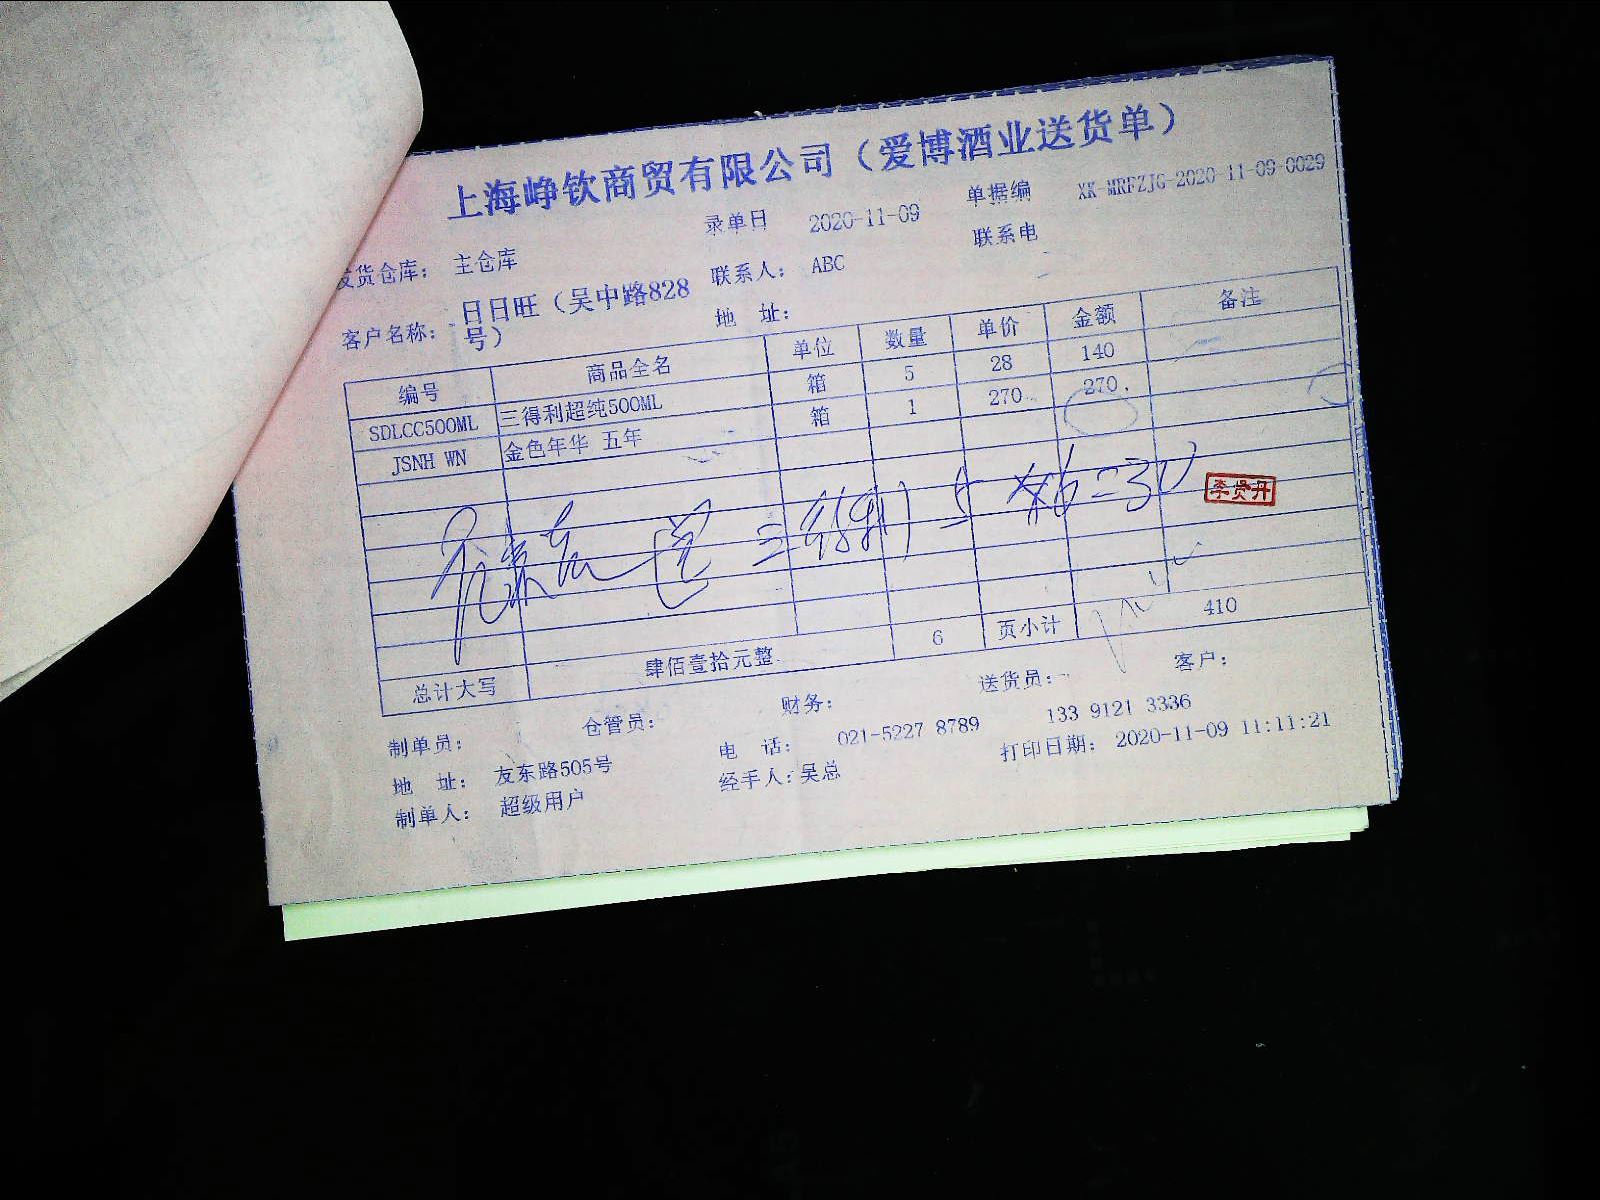 上海峥钦商贸有限公司（爱博酒业送货单）
录单日 2020-11-09 单据编 XK-MRFZJG-2020-11-09-0029
发货仓库： 主仓库 联系人： ABC 联系电
客户名称： 日日旺（吴中路828号） 地 址：
编号 商品全名 单位 数量 单价 金额 备注
SDLCC500ML 三得利超纯500ML 箱 5 28 140
JSNH WN 金色年华 五年 箱 1 270 270
三得利 5 ×6=30
总计大写 肆佰壹拾元整 6 页小计 410
制单员： 仓管员： 财务： 送货员： 客户：
地 址： 友东路505号 电 话： 021-5227 8789 133 9121 3336
制单人： 超级用户 经手人：吴总 打印日期： 2020-11-09 11:11:21